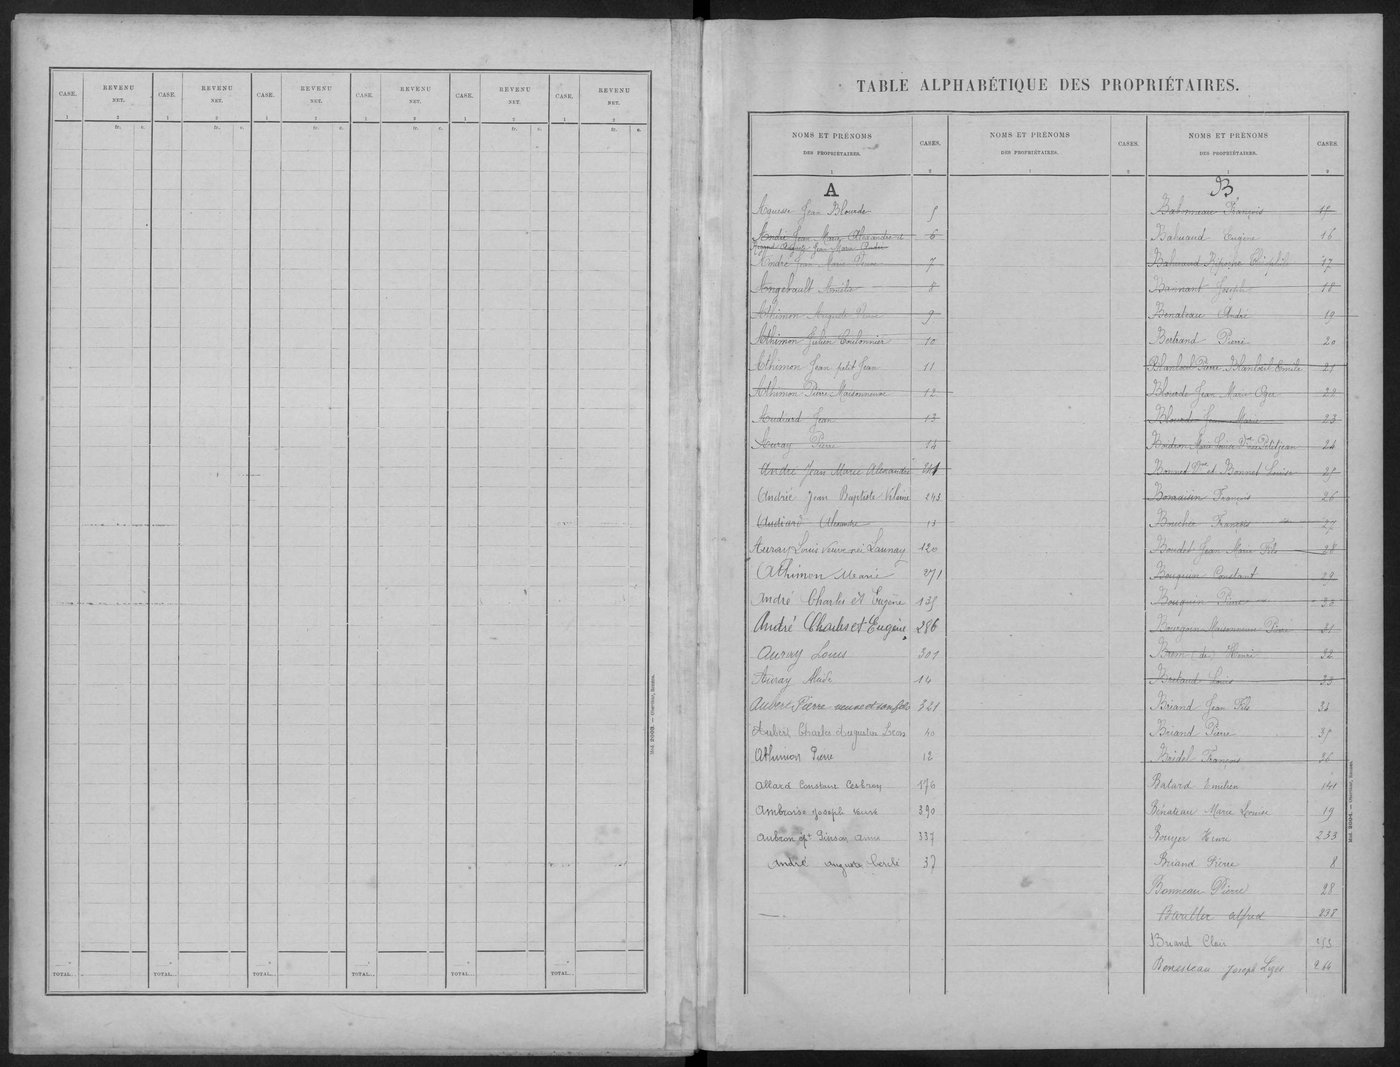 CASE. REVENU NET. CASE. REVENU NET. CASE. REVENU NET. CASE. REVENU NET. CASE. REVENU NET. CASE. REVENU NET.
1 2 1 2 1 2 1 2 1 2 1 2
fr. c. fr. c. fr. c. fr. c. fr. c. fr. c.
TOTAL. . TOTAL. . TOTAL. . TOTAL. . TOTAL. . TOTAL. .
Mod. 2003. — Oberthur, Rennes.
TABLE ALPHABÉTIQUE DES PROPRIÉTAIRES.
NOMS ET PRÉNOMS DES PROPRIÉTAIRES. CASES.
1 2
A
Jean Blourde 5
André Jean Marie Alexandre et 6
Auguste Jean Marie André
André Jean Marie Pierre 7
Angebault Amélie 8
Athimon Auguste 9
Athimon Julien Coulonnier 10
Athimon Jean petit Jean 11
Athimon Pierre Maisonneuve 12
Audiard Jean 13
Auray Pierre 14
André Jean Marie Alexandre 241
André Jean Baptiste 243
Audiard Alexandre 13
Auray Louis Veuve née Launay 120
Athimon Marie 271
André Charles et Eugène 135
André Charles et Eugène 286
Auray Louis 301
Auray 14
Aubert Pierre veuve et son fils 321
Aubert Charles Augustin Léon 40
Athimon Pierre 12
Allard Constant 176
Ambroise Joseph veuve 390
Aubron Pinson Anne 337
André Auguste 37
NOMS ET PRÉNOMS DES PROPRIÉTAIRES. CASES.
1 2
NOMS ET PRÉNOMS DES PROPRIÉTAIRES. CASES.
1 2
B
Babonneau François 15
Bahuaud Eugène 16
Bahuaud 17
Bannant Joseph 18
Benateau André 19
Bertrand Pierre 20
Blanloeil Pierre Blanloeil Emile 21
Blourde Jean Marie 22
Blourde Jean Marie 23
Marie Louise Petitjean 24
Bonnet Vve et Bonnet Louise 25
François 26
Boucher François 27
Boudet Jean Marie Fils 28
Bouquin Constant 29
Bouquin Pierre 30
Bourgoin Maisonneuve Pierre 31
(de) Henri 32
Bretaud Louis 33
Briand Jean Fils 34
Briand Pierre 35
Bridel François 36
Batard Emilien 141
Bénateau Marie Louise 19
Bouyer Henri 233
Briand Pierre 8
Bonneau Pierre 28
Alfred 238
Briand Clair 253
Joseph 264
Mod. 2004. — Oberthur, Rennes.